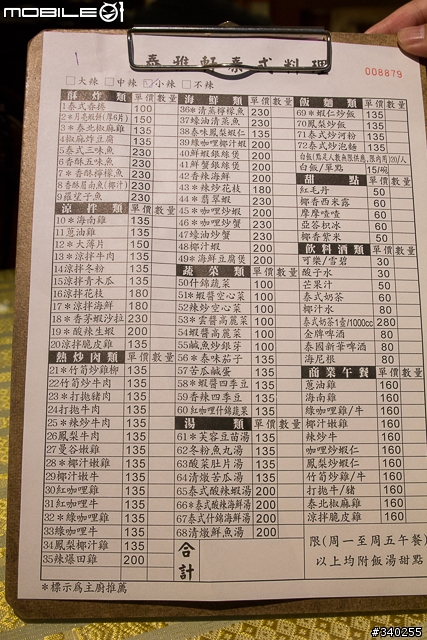 MOBILE01
泰雅軒泰式料理
008879
□大辣 □中辣 ☑小辣 □不辣
酥炸類 單價 數量
1泰式春捲 100
2*月亮蝦餅(厚6片) 150
3*泰北椒麻雞 230
4椒麻炸豆腐 135
5泰式三味魚 230
6香酥五味魚 230
7*香酥檸檬魚 230
8香酥月南魚(椰汁) 230
9羅望子魚 230
涼拌類 單價 數量
10*海南雞 135
11蔥油雞 135
12*大薄片 150
13*涼拌牛肉 135
14涼拌冬粉 135
15涼拌青木瓜 135
16涼拌花枝 180
17*涼拌海鮮 180
18*香茅蝦沙拉 230
19*酸辣生蝦 200
20涼拌脆皮雞 135
熱炒肉類 單價 數量
21*竹筍炒雞柳 135
22竹筍炒牛肉 135
23*打拋豬肉 135
24打拋牛 135
25*辣炒牛肉 135
26鳳梨牛肉 135
27曼谷嫩雞 135
28*椰汁嫩雞 135
29椰汁嫩牛 135
30紅咖哩雞 135
31紅咖哩牛 135
32*綠咖哩雞 135
33綠咖哩牛 135
34鳳梨椰汁雞 135
35辣爆田雞 200
*標示為主廚推薦
海鮮類 單價 數量
36*清蒸檸檬魚 230
37蠔油清蒸魚 230
38泰味鳳梨蝦仁 135
39綠咖哩椰汁蝦 200
40鮮蝦銀絲煲 200
41鮮蟹銀絲煲 200
42香辣海鮮 200
43*辣炒花枝 180
44*翡翠蝦 230
45*咖哩炒蝦 200
46*咖哩炒蟹 200
47蠔油炒蟹 200
48椰汁蝦 200
49*海鮮豆腐煲 200
蔬菜類 單價 數量
50什錦蔬菜 100
51*蝦醬空心菜 100
52辣炒空心菜 100
53*雲醬高麗菜 100
54蝦醬高麗菜 100
55鹹魚炒銀芽 100
56*泰味茄子 135
57苦瓜鹹蛋 135
58*蝦醬四季豆 135
59香辣四季豆 135
60紅咖哩什錦蔬果 135
湯類 單價 數量
61*芙蓉豆苗湯 135
62冬粉魚丸湯 135
63酸菜肚片湯 135
64清燉苦瓜湯 135
65泰式酸辣蝦湯 200
66*泰式酸辣海鮮湯 200
67泰式什錦海鮮湯 200
68清燉鮮魚湯 200
合計
飯麵類 單價 數量
69*蝦仁炒飯 135
70鳳梨炒飯 135
71泰式炒河粉 135
72泰式炒泡麵 135
白飯(點足人數無限供應,限內用)20/人
白飯/單點 15/碗
甜點 單價 數量
紅毛丹 50
椰香西米露 60
摩摩喳喳 60
亞答枳冰 60
椰香紫米 50
飲料酒類 單價 數量
可樂/雪碧 30
酸子水 30
芒果汁 50
泰式奶茶 60
椰汁水 80
泰式奶茶1壺/1000cc 280
金牌啤酒 80
泰國新華啤酒 80
海尼根 80
商業午餐 單價 數量
蔥油雞 160
海南雞 160
綠咖哩雞/牛 160
椰汁嫩雞 160
辣炒牛 160
咖哩炒蝦仁 160
鳳梨炒蝦仁 160
竹筍炒雞/牛 160
打拋牛/豬 160
泰北椒麻雞 160
涼拌脆皮雞 160
限(周一至周五午餐)
以上均附飯湯甜點
#340255